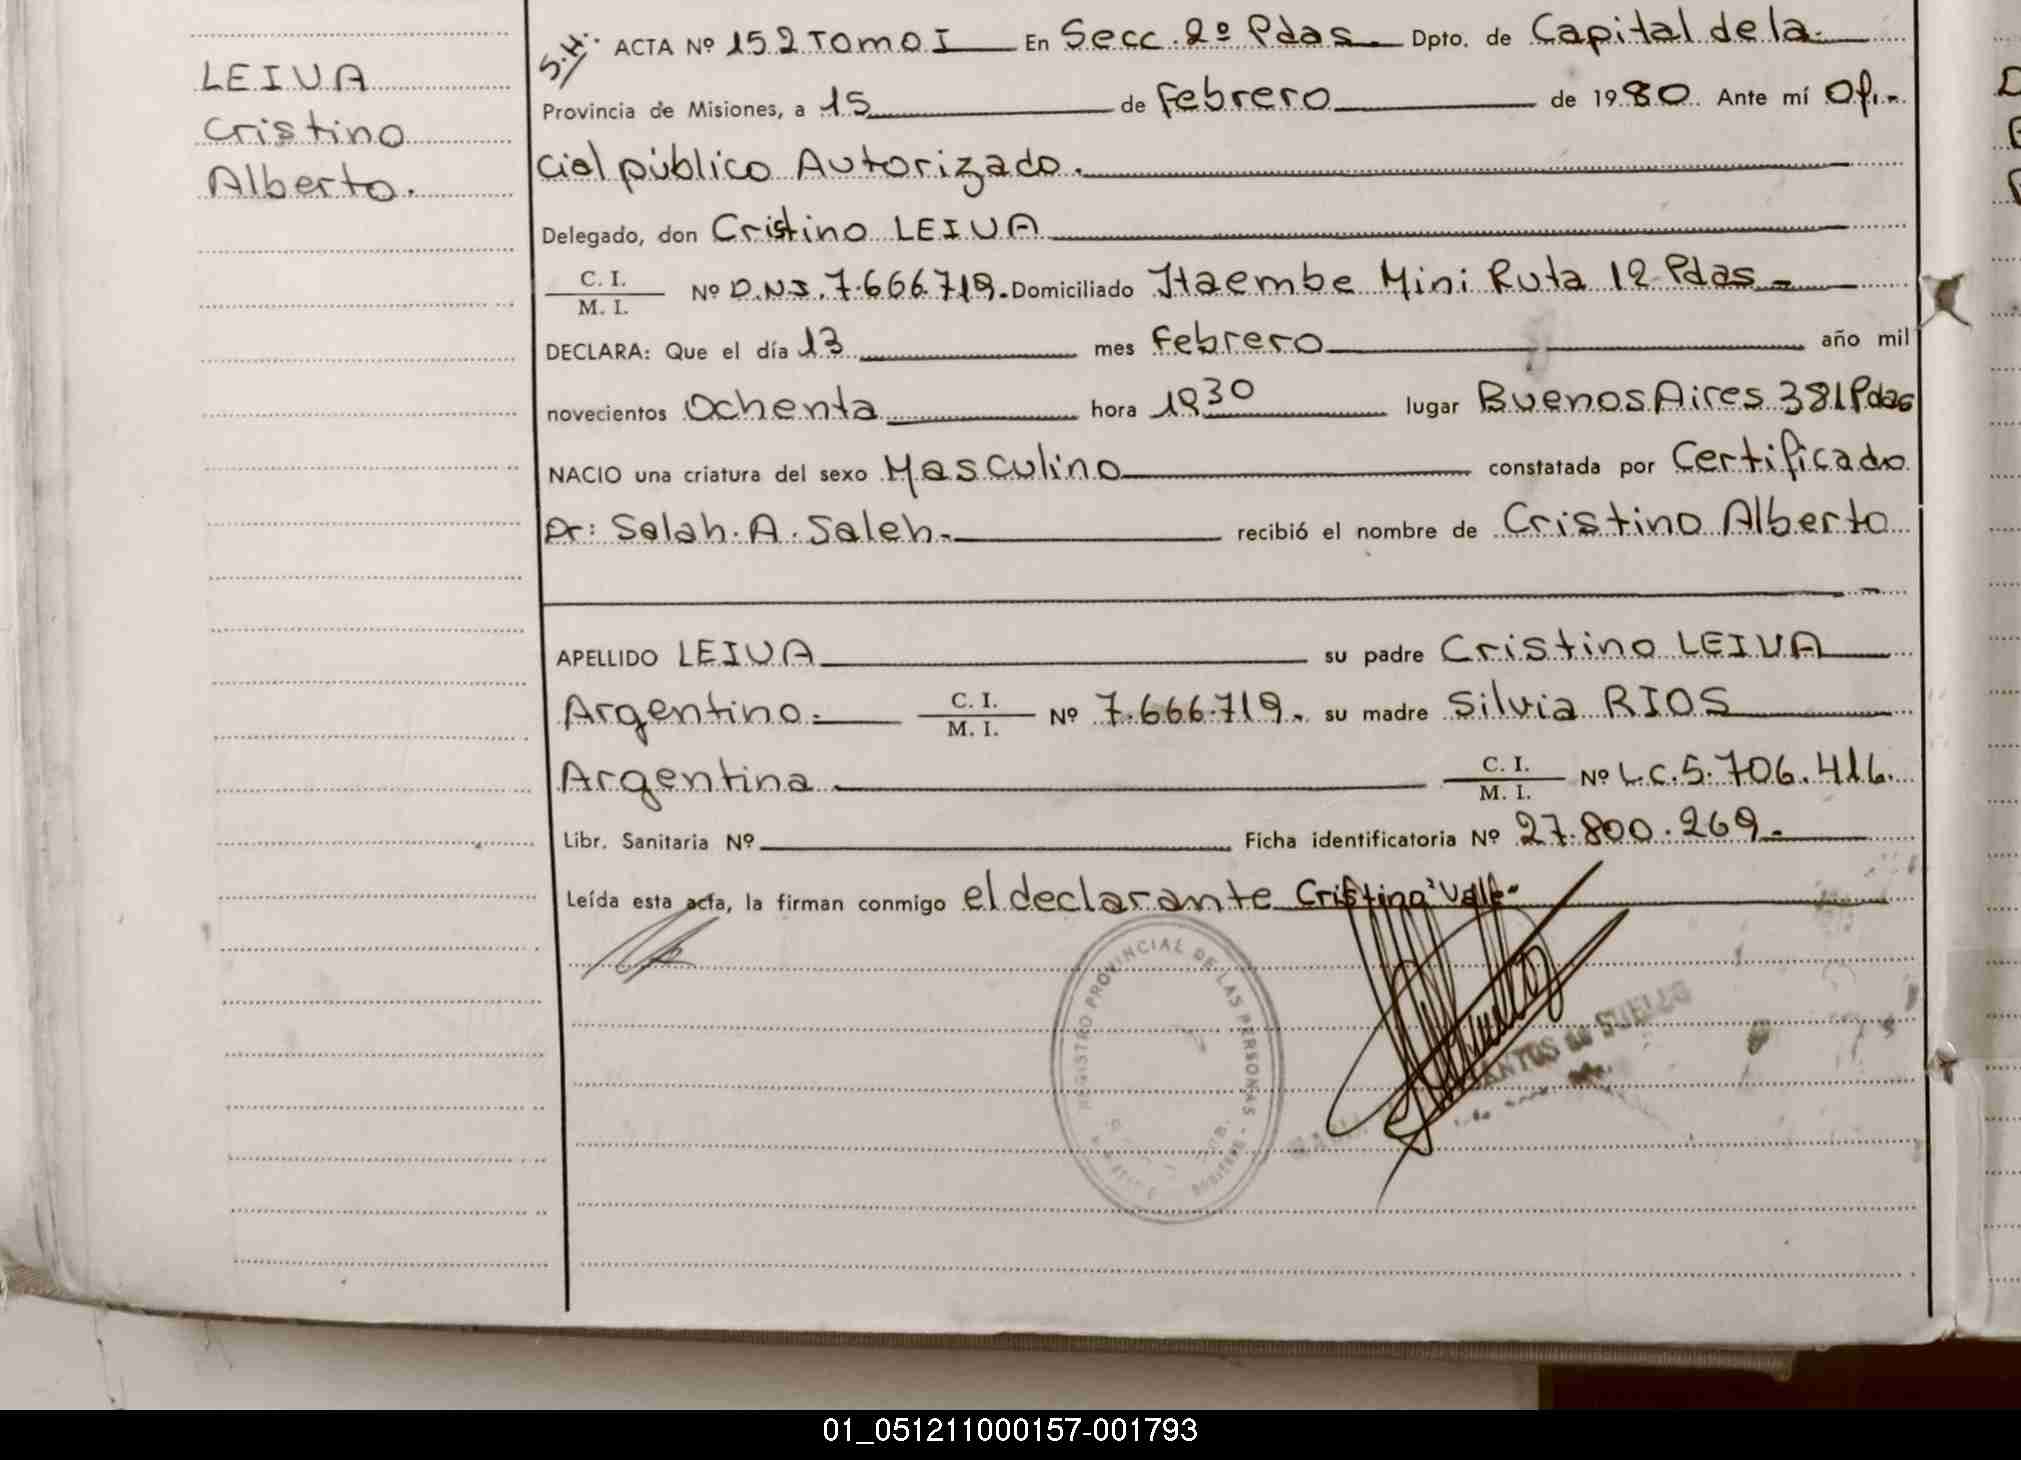 LEIVA
Cristino
Alberto.
S.H. ACTA Nº 152 Tomo I En Secc. 2º Pdas. Dpto. de Capital de la
Provincia de Misiones, a 15 de Febrero de 1980. Ante mí Ofi-
cial público Autorizado.
Delegado, don Cristino LEIVA
C. I.
M. I. Nº D.N.I. 7.666.719. Domiciliado Itaembe Mini Ruta 12 Pdas
DECLARA: Que el día 13 mes Febrero año mil
novecientos Ochenta hora 1930 lugar Buenos Aires 381 Pdas
NACIO una criatura del sexo Masculino constatada por Certificado
Dr: Salah. A. Saleh. recibió el nombre de Cristino Alberto
APELLIDO LEIVA su padre Cristino LEIVA
Argentino. C. I.
M. I. Nº 7.666.719. su madre Silvia RIOS
Argentina C. I.
M. I. Nº L.C. 5.706.416.
Libr. Sanitaria Nº Ficha identificatoria Nº 27.800.269.
Leída esta acta, la firman conmigo el declarante Cristino "Vale"
REGISTRO PROVINCIAL DE LAS PERSONAS
SANTOS de SUELDO
01_051211000157-001793